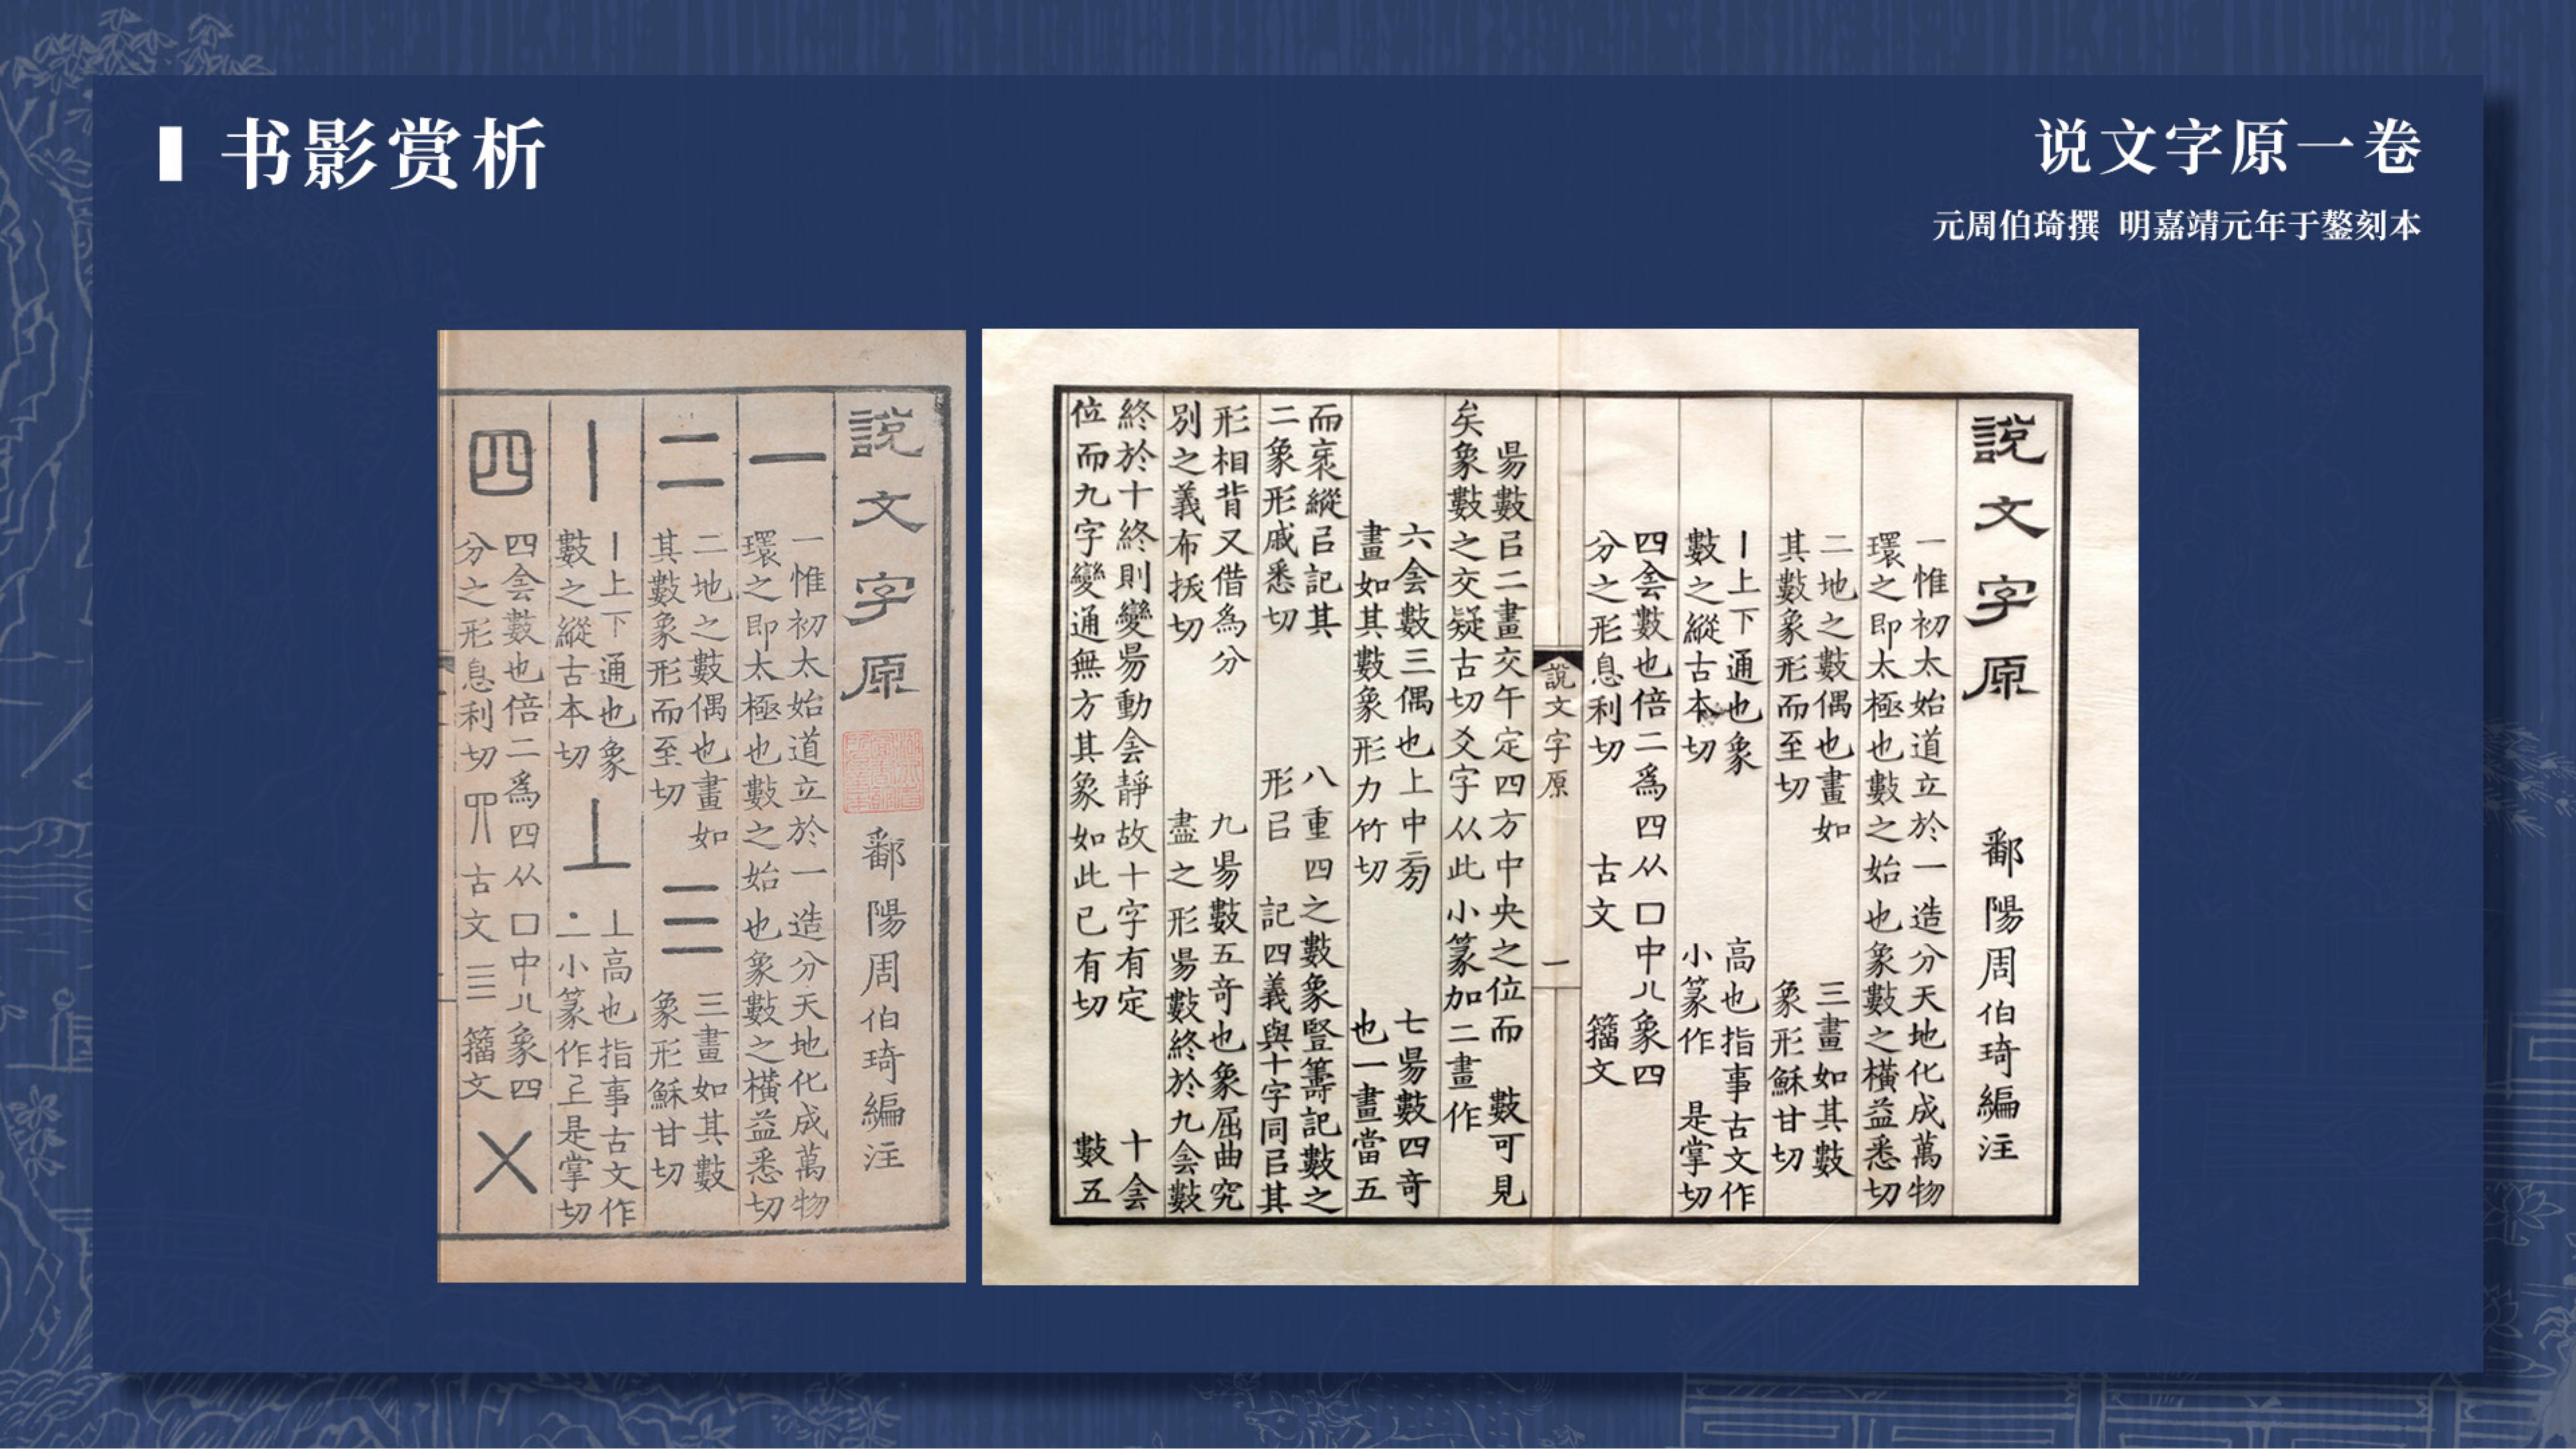 书影赏析
说文字原一卷
元周伯琦撰 明嘉靖元年于鏊刻本
說文字原 鄱陽周伯琦編注
一 一惟初太始道立於一造分天地化成萬物
環之即太極也數之始也象數之橫益悉切
二 二地之數偶也畫如
其數象形而至切
三 三畫如其數
象形穌甘切
丨 丨上下通也象
數之縱古本切
丄 丄高也指事古文作
小篆作 是掌切
四 四侌數也倍二爲四从口中儿象四
分之形息利切 古文 亖 籀文
㐅
說文字原 鄱陽周伯琦編注
一惟初太始道立於一造分天地化成萬物
環之即太極也數之始也象數之橫益悉切
二地之數偶也畫如
其數象形而至切
三畫如其數
象形穌甘切
丨上下通也象
數之縱古本切
高也指事古文作
小篆作 是掌切
四侌數也倍二爲四从口中儿象四
分之形息利切 古文 籀文
說文字原 一
昜數㠯二畫交午定四方中央之位而 數可見
矣象數之交疑古切爻字从此小篆加二畫作
六侌數三偶也上中
畫如其數象形力竹切
七昜數四奇
也一畫當五
而衺縱㠯記其
二象形戚悉切
八重四之數象豎籌記數之
形㠯 記四義與十字同㠯其
形相背又借為分
別之義布拔切
九昜數五奇也象屈曲究
盡之形昜數終於九侌數
終於十終則變昜動侌靜故十字有定
位而九字變通無方其象如此已有切
十侌
數五